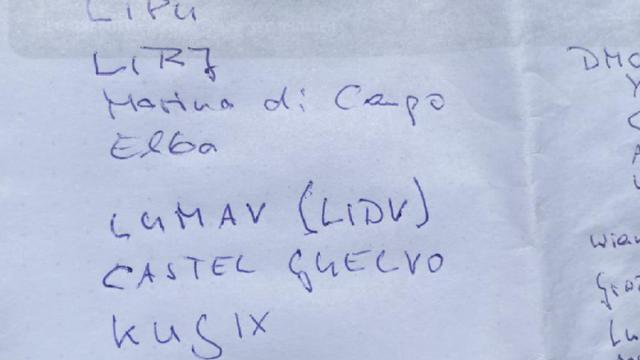 LIPU
LIRJ
Marina di Campo
Elba
LUMAV (LIDV)
CASTEL GUELVO
KUGIX
DMO
Y
C
A
wian